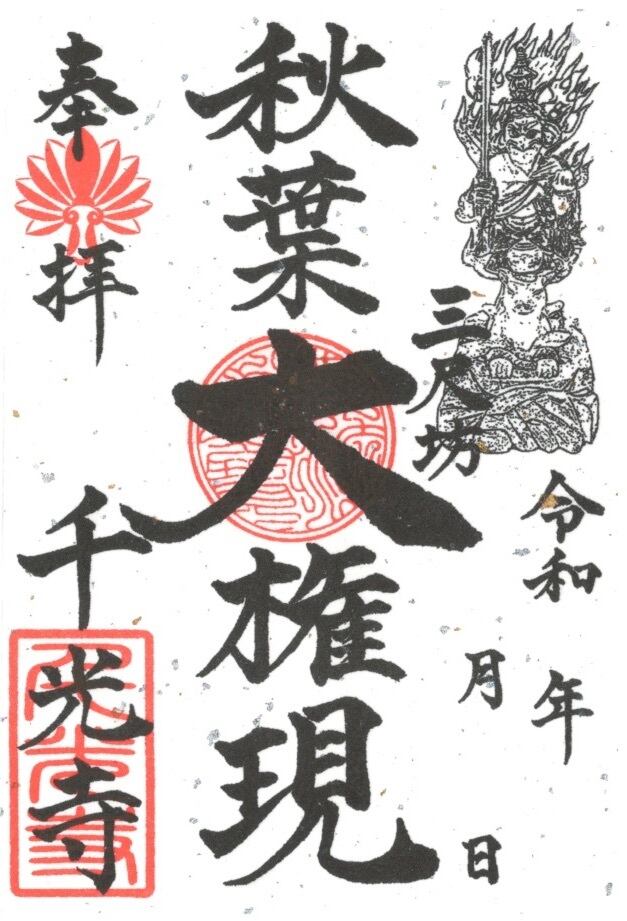 令和 年
月 日
三尺坊
秋葉大権現
奉拝
千光寺